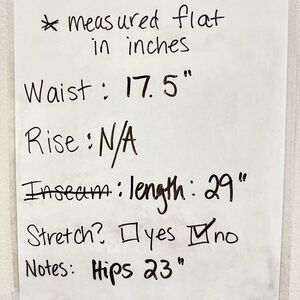 * measured flat
in inches
Waist: 17.5"
Rise: N/A
Inseam: length: 29"
Stretch? ☐ yes ☑ no
Notes: Hips 23"